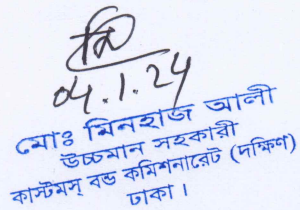 04.1.24
মোঃ মিনহাজ আলী
উচ্চমান সহকারী
কাস্টমস্ বন্ড কমিশনারেট (দক্ষিণ)
ঢাকা।